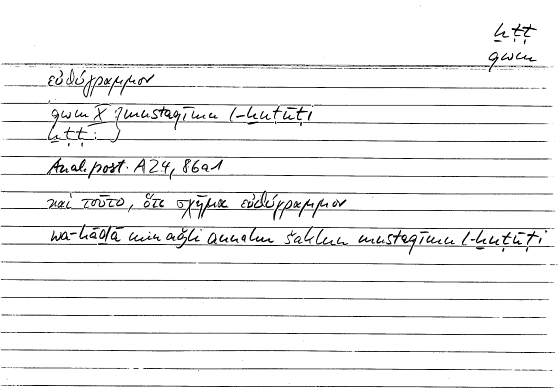 ḫṭṭ
qwm
εὐθύγραμμον
qwm X } mustaqīmu l-ḫuṭūṭi
ḫṭṭ :
Anal. post. A 24, 86a1
καὶ τοῦτο, ὅτι σχῆμα εὐθύγραμμον
wa-hāḏā min aǧli annahu šaklun mustaqīmu l-ḫuṭūṭi